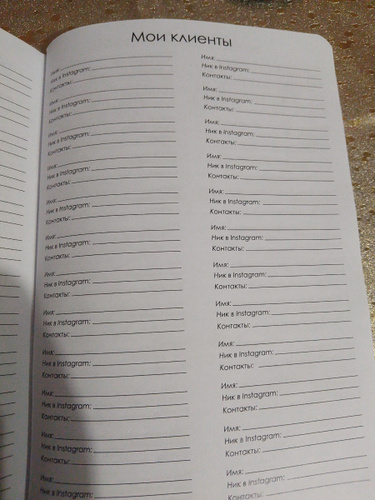 Мои клиенты
Имя:
Ник в Instagram:
Контакты:
Имя:
Ник в Instagram:
Контакты:
Имя:
Ник в Instagram:
Контакты:
Имя:
Ник в Instagram:
Контакты:
Имя:
Ник в Instagram:
Контакты:
Имя:
Ник в Instagram:
Контакты:
Имя:
Ник в Instagram:
Контакты:
Имя:
Ник в Instagram:
Контакты:
Имя:
Ник в Instagram:
Контакты:
Имя:
Ник в Instagram:
Контакты:
Имя:
Ник в Instagram:
Контакты:
Имя:
Ник в Instagram:
Имя:
Ник в Instagram:
Контакты:
Имя:
Ник в Instagram:
Контакты:
Имя:
Ник в Instagram:
Контакты:
Имя:
Ник в Instagram:
Контакты:
Имя:
Ник в Instagram:
Контакты:
Имя:
Ник в Instagram:
Контакты:
Имя:
Ник в Instagram:
Контакты:
Имя:
Ник в Instagram:
Контакты:
Имя:
Ник в Instagram:
Контакты:
Имя:
Ник в Instagram:
Контакты:
Имя:
Ник в Instagram:
Контакты:
Имя:
Ник в Instagram:
Контакты: